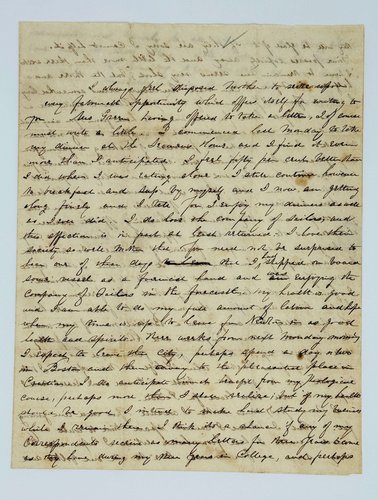 I always feel disposed Mother to seize upon
every favourable opportunity which offers itself for writing to
you & Mrs having offered to take a letter, I of course
must write a little. I commenced last Monday to take
my dinner at the House and I find it even
more than I anticipated. I feel fifty per cent better than
I did when I was eating alone. I still continue however
to breakfast and sup by myself and I now am getting
along finely and I tell you I enjoy my dinners as well
as I ever did. I do love the company of Sailors and
the affection is in part at least returned. I love their
society so well Mother that you need not be surprised to
hear one of these days that I shipped on board
some vessel as a foremast hand and am enjoying the
company of Sailors in the forecastle. My health is good
and I am able to do my full amount of labour and hope
when my time is up to leave for N in as good
health and spirits. Three weeks from next Monday morning
I expect to leave the city, perhaps spend a day or two
in Boston and then away to the pleasantest place in
Creation. I do anticipate much benefit from my Theological
course, perhaps more than I shall realise, but if my health
should be good I intend to make hard study my business
while I remain there. I think it's a chance if any of my
Correspondents receive as many letters for three years to come
as they have during my three years in College, and perhaps